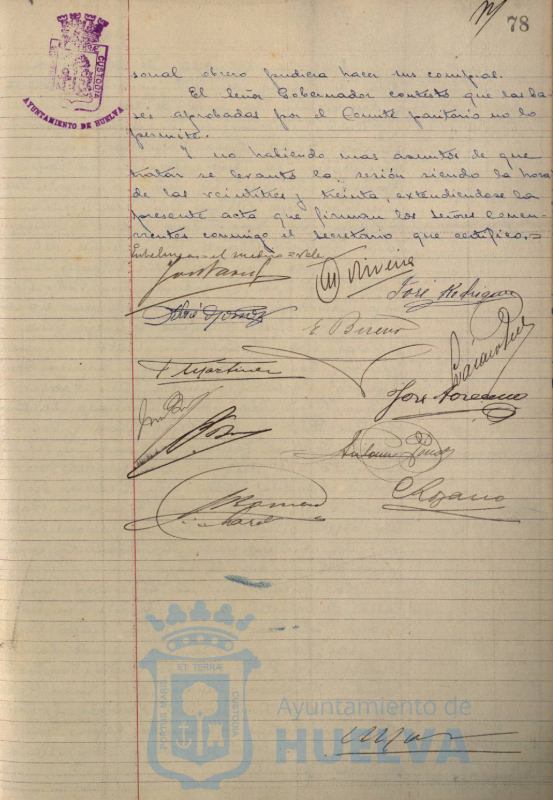 78
CUSTODIA
AYUNTAMIENTO DE HUELVA
sonal obrero pudiera hacer sus compras.
El Señor Gobernador contestó que las ba-
ses aprobadas por el Comité paritario no lo
permite.
Y no habiendo mas asuntos de que
tratar se levantó la sesión siendo la hora
de las veintitres y treinta, extendiendose la
presente acta que firman los señores concu-
rrentes conmigo el Secretario que certifico,=
Entrelineas = el medio = Vale
José Rodriguez
E. Bueno
F Martinez
José
Antonio
Romero
C Lozano
ET TERRÆ
PORTUS MARIS
CUSTODIA
Ayuntamiento de
HUELVA